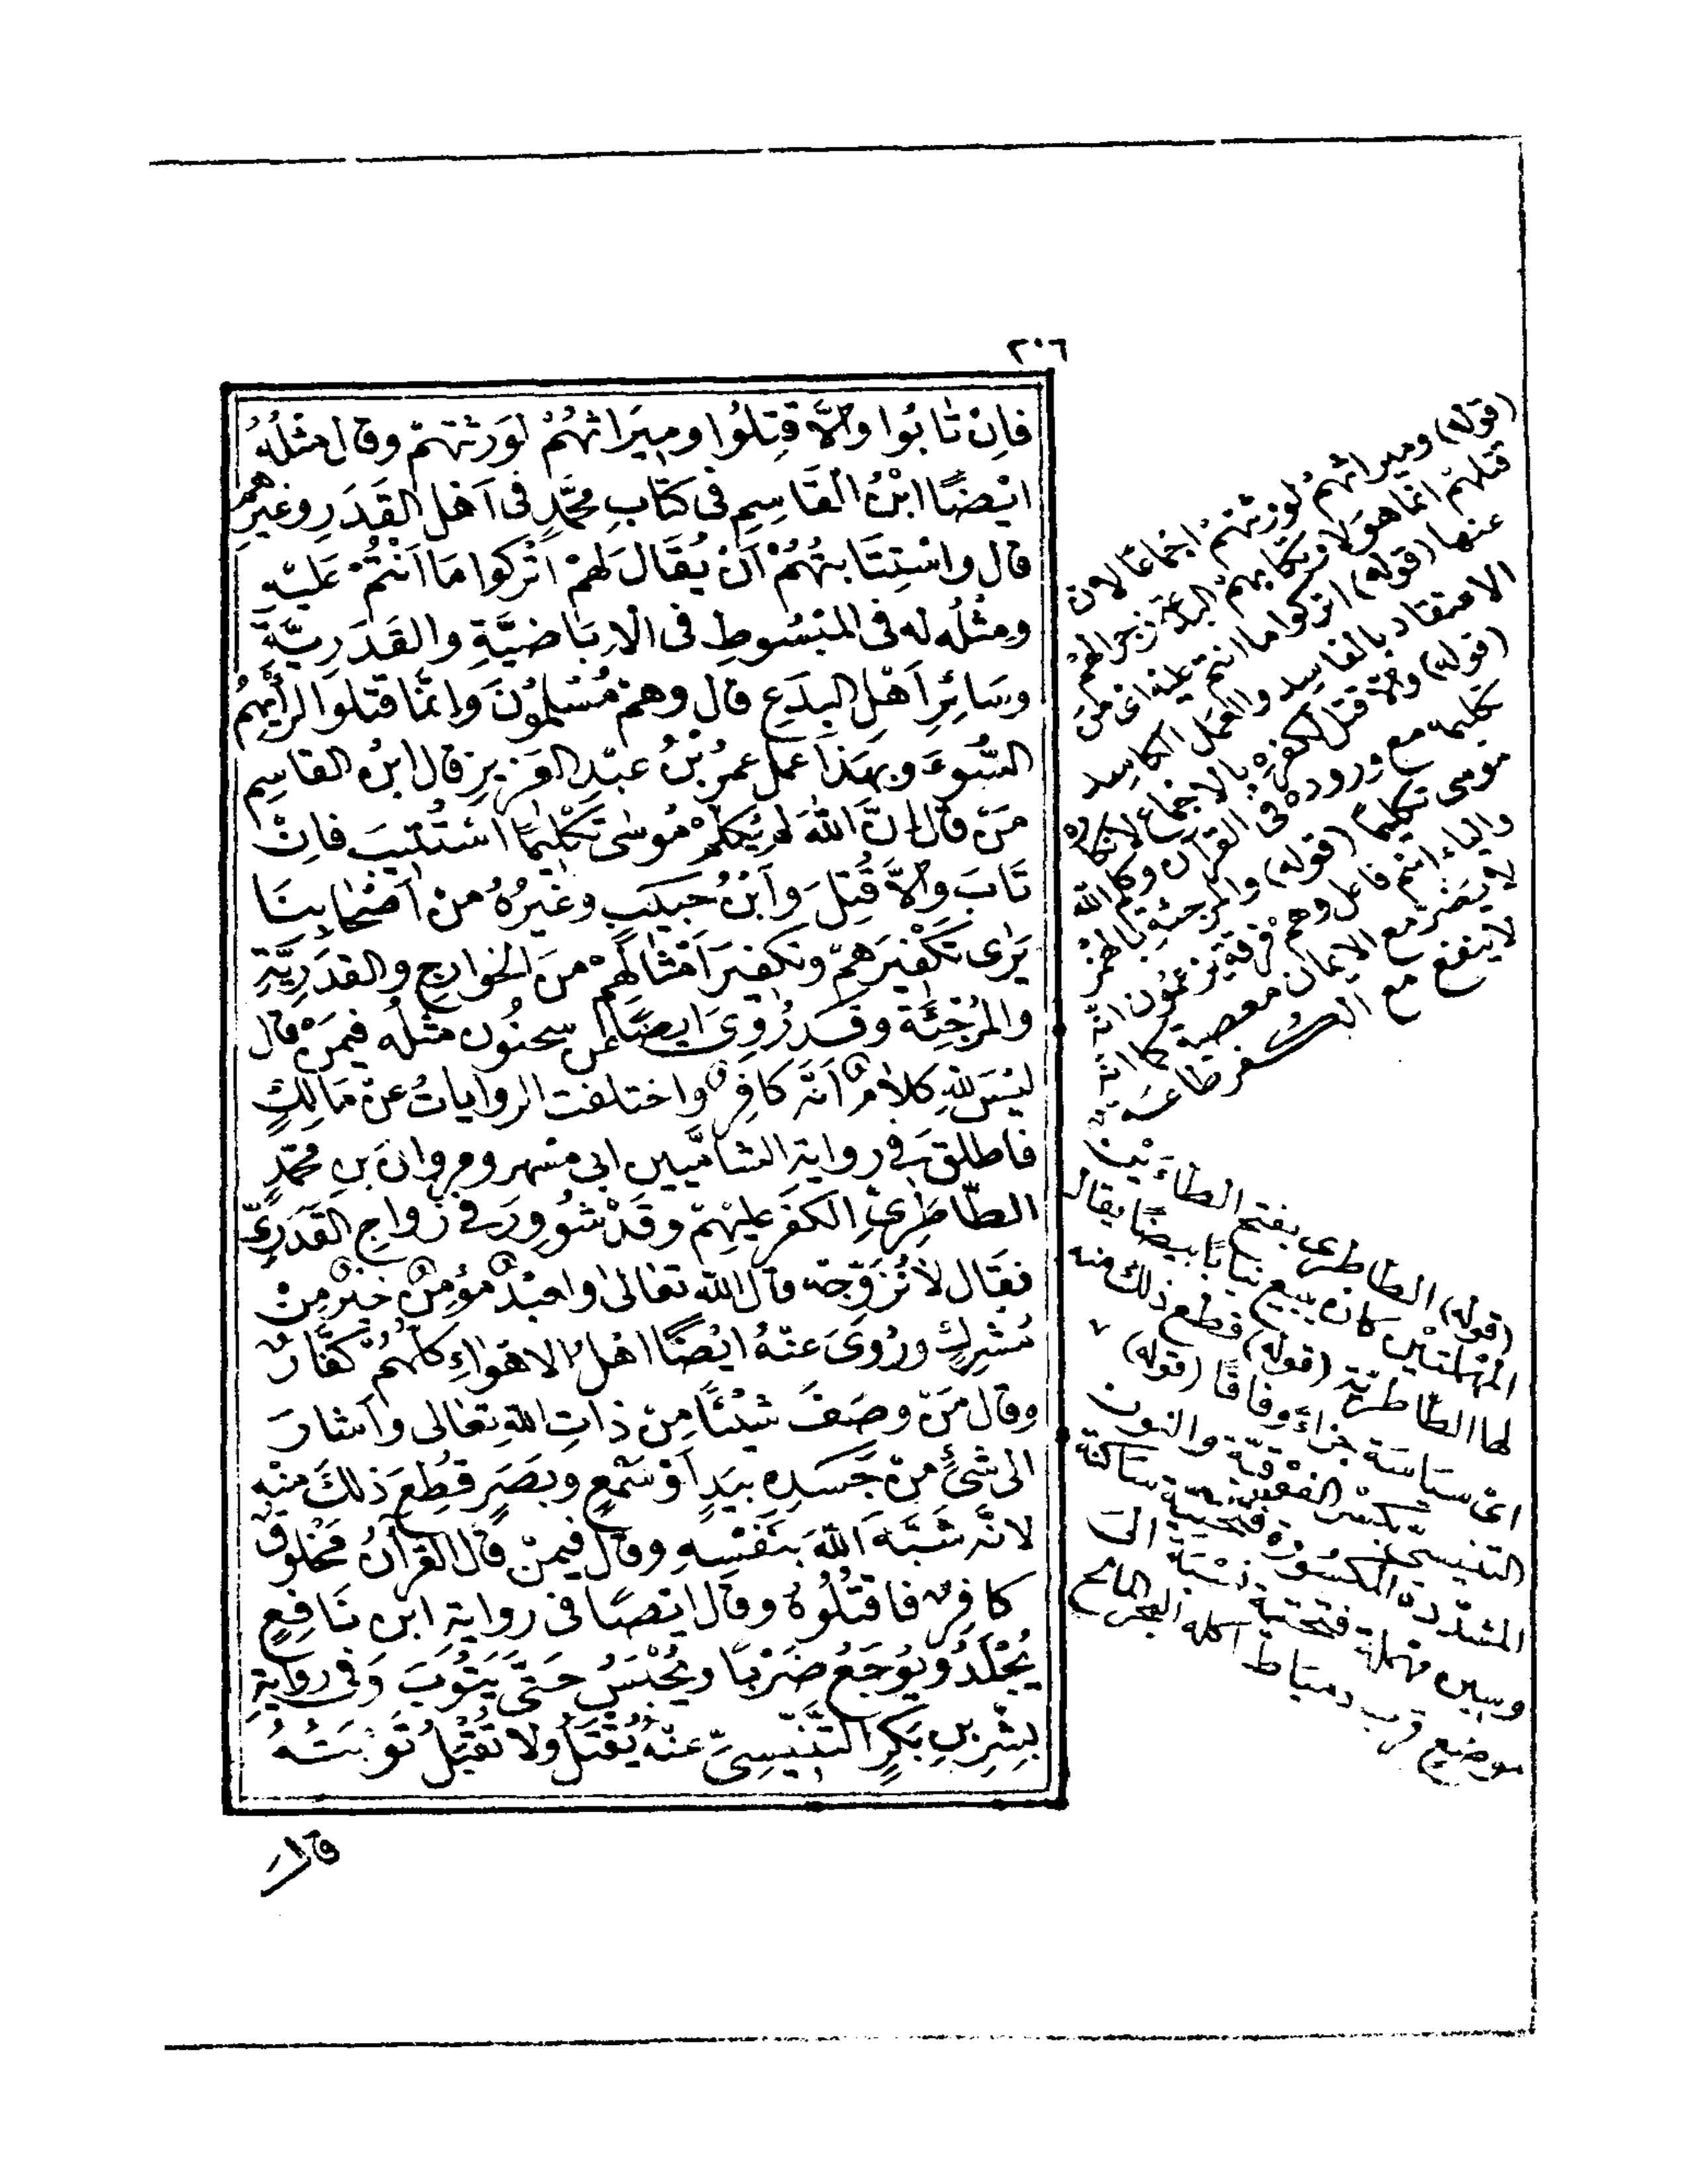 ٢٠٦
فَاِنْ تَابُوا وَاِلَّا قُتِلُوا وَمِيرَاثُهُمْ لِوَرَثَتِهِمْ وقال مثلَهُ
ايْضًا ابْنُ القَاسِمِ فى كتابِ محمَّدٍ فى اَهْلِ القَدَرِ وغيرِهم
قال واسْتِتَابَتُهُمْ اَنْ يُقَالَ لَهُمْ اتْرُكوا مَا اَنْتُمْ عَلَيْهِ
ومثْلُه له فى المَبْسُوطِ فى الْاِبَاضِيَّةِ والقَدَرِيَّةِ
وسَائِرِ اَهْلِ البِدَعِ قال وهُمْ مُسْلِمُونَ وَاِنَّمَا قُتِلُوا لِرَأْيِهِمُ
السُّوءِ وبهَذَا عَمِلَ عمرُ بْنُ عبْدِ العَزِيزِ قال ابْنُ القاسِمِ
مَنْ قال اِنَّ اللهَ لم يُكَلِّمْ مُوسٰى تَكْلِيمًا اسْتُتِيبَ فاِنْ
تَابَ وَاِلَّا قُتِلَ وَابْنُ حَبِيبٍ وغَيْرُهُ مِنْ اَصْحَابِنَا
يَرٰى تَكْفِيرَهُمْ وتكفيرَ اَمْثَالِهِمْ منَ الخوارِجِ والقدَرِيَّةِ
والمُرْجِئَةِ وقَدْ رُوِىَ ايضًا عن سحنُون مثلُه فيمَنْ قال
ليْسَ للهِ كلامٌ اَنَّه كافِرٌ واختلفت الرواياتُ عنْ مَالِكٍ
فاطلقَ فى روايةِ الشاميِّين ابى مُسْهِر ومروانَ بنِ محمَّدٍ
الطَّاطَرِىِّ الكفرَ عليْهِمْ وقَدْ شُوورَ فى زواجِ القَدَرِىِّ
فقال لا تُزَوِّجْه قال الله تعالى ولَعَبْدٌ مُؤْمِنٌ خَيْرٌ مِنْ
مُشْرِكٍ ورُوِىَ عَنْهُ ايْضًا اهلُ الاهْوَاءِ كلُّهُمْ كُفَّارٌ
وقال مَنْ وصَفَ شَيْئًا مِنْ ذاتِ اللهِ تعَالى واَشارَ
الى شئٍ مِنْ جَسَدِهِ بِيَدٍ اَوْ سَمْعٍ وبَصَرٍ قُطِعَ ذلكَ منْه
لانَّه شَبَّهَ اللهَ بِنَفْسِهِ وقال فيمَنْ قال القرآنُ مَخْلوقٌ
كافِرٌ فاقْتُلُوهُ وقال ايْضًا فى روايةِ ابْنِ نَافِعٍ
يُجْلَدُ ويُوجَعُ ضَرْبًا ويُحْبَسُ حَتَّى يَتُوبَ وَفى روايةِ
بِشْرِ بنِ بَكْرٍ التِّنِّيسِىِّ عنْه يُقْتَلُ ولا تُقْبَلُ تَوْبَتُهُ
قال
(قوله) وميراثهم لورثتهم اجماعًا لان
قتلهم انما هو لارتكابهم البدعة زجرا لهم
عنها (قوله) اتركوا ما انتم عليه اى من
الاعتقاد بالفاسد والعمل الكاسد
(قوله) والا قتل لكفره بالاجماع لانكاره
تكليمه مع وروده فى القرآن وكلم الله
موسى تكليما (قوله) والمرجئة بالهمز
والياء اسم فاعل وهم فرقة يزعمون انه
لا يضر مع الايمان معصية كما انه
لا ينفع مع الكفر طاعة
(قوله) الطاطرى بفتح الطاءين
المهملتين كان يبيع ثيابا بيضًا يقال
لها الطاطرية (قوله) قطع ذلك منه
اى سياسة جزاءً وفاقًا (قوله)
التنيسى بكسر الفوقية والنون
المشددة المكسورة فتحتية ساكنة
وسين مهملة فتحتية نسبة الى
موضع قرب دمياط اكله البحر المالح